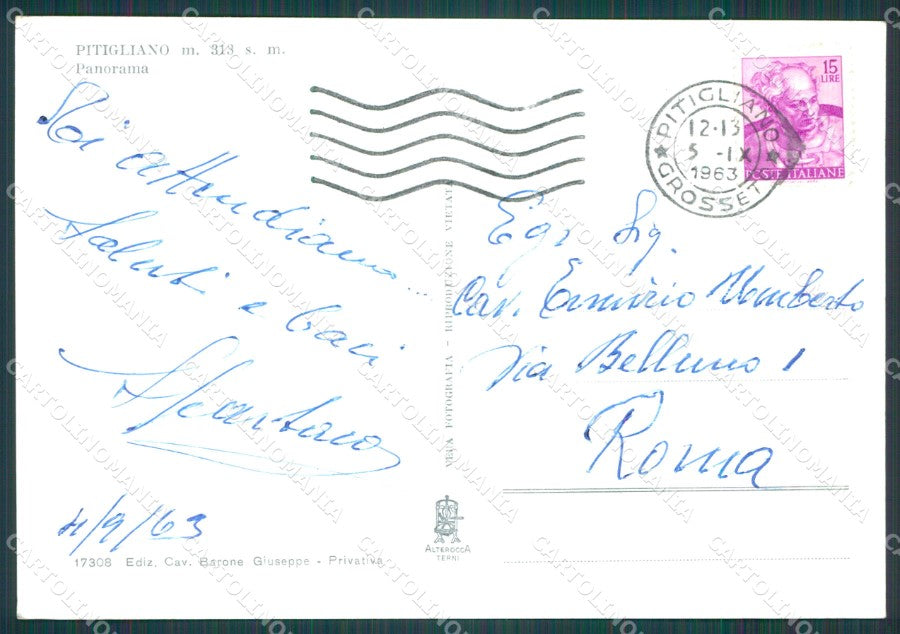 PITIGLIANO m. 313 s. m.
Panorama
Noi attendiamo...
Saluti e baci
4/9/63
17308 Ediz. Cav. Barone Giuseppe - Privativa
VERA FOTOGRAFIA - RIPRODUZIONE VIETATA
ALTEROCCA
TERNI
15
LIRE
POSTE ITALIANE
PITIGLIANO
12-13
5 -IX
1963
GROSSET
Egr. Sig.
Cav. Erminio Umberto
Via Belluno 1
Roma
CARTOLINOMANIA